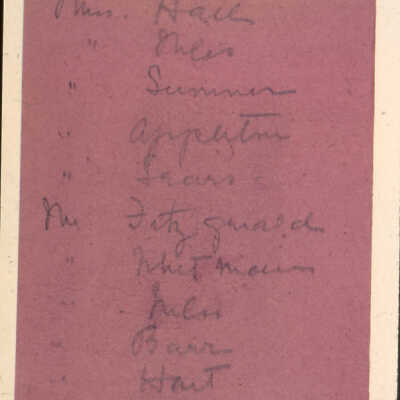 Mrs. Hall
" Niles
" Sumner
" Appleton
" Sears
Mr Fitzgerald
" Whitman
" Niles
" Barr
" Hart